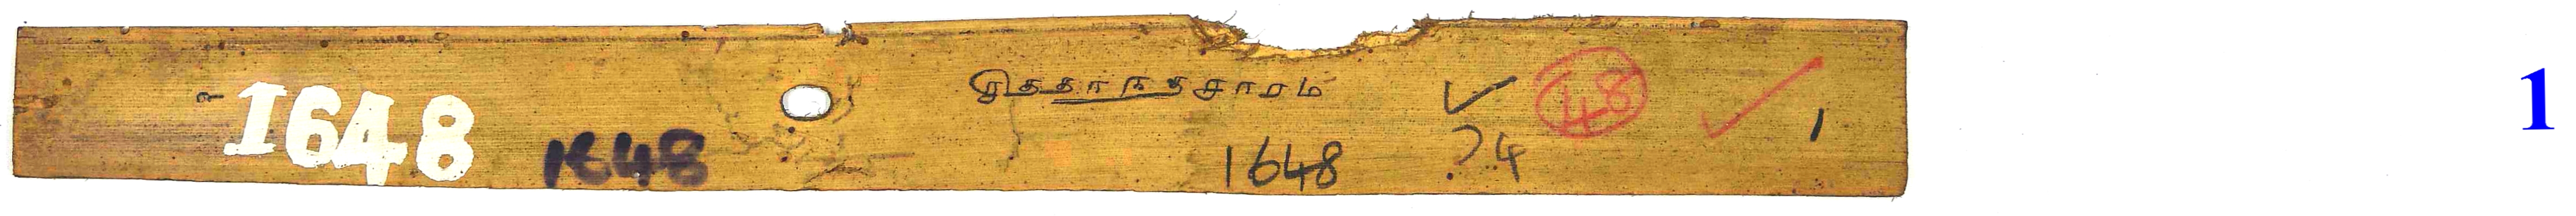 1648 சித்தாந்தசாரம் ✓ 48 ✓ 1
1648 1648 24
1